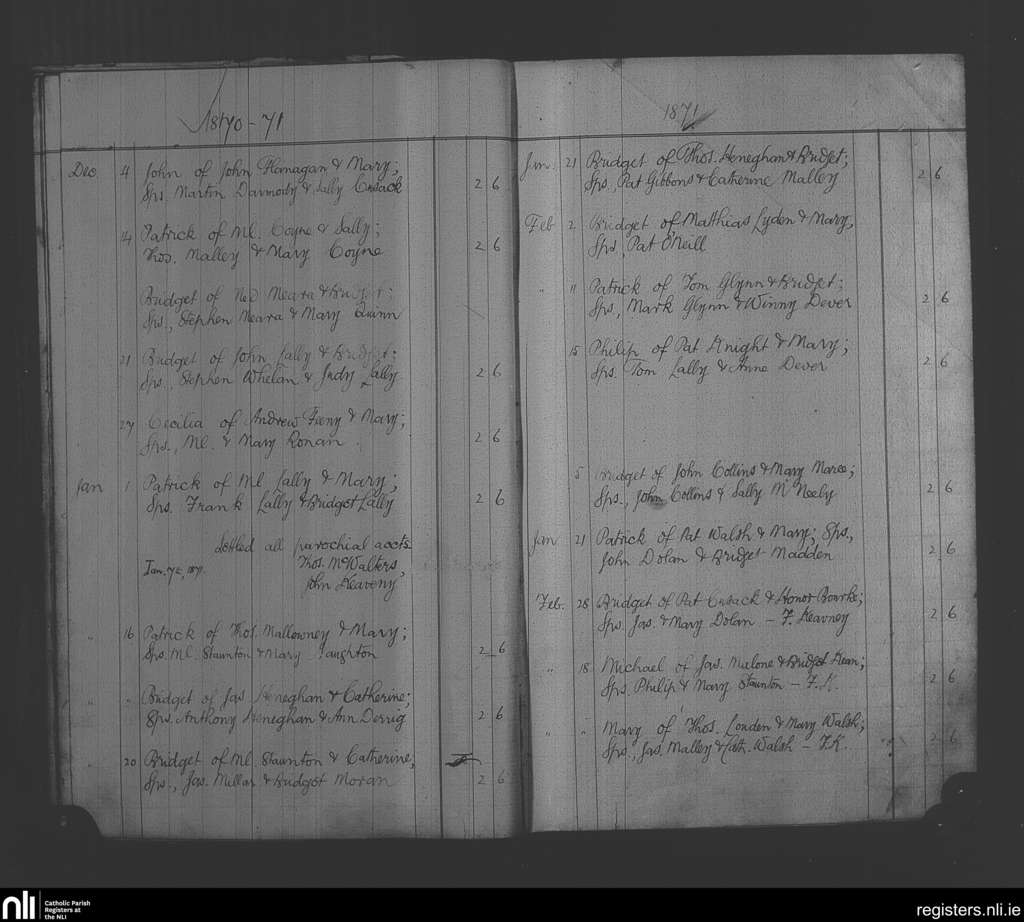 1870-71
Dec 4 John of John Flanagan & Mary;
Sps. Martin Darmody & Sally Cusack 2 6
14 Patrick of Ml. Coyne & Sally;
Thos. Malley & Mary Coyne 2 6
Bridget of Ned Meara & Bridget;
Sps., Stephen Meara & Mary Quinn
21 Bridget of John Lally & Bridget;
Sps., Stephen Whelan & Judy Lally 2 6
27 Cecilia of Andrew Feeny & Mary;
Sps., Ml. & Mary Ronan 2 6
Jan 1 Patrick of Ml Lally & Mary;
Sps. Frank Lally & Bridget Lally 2 6
Settled all parochial accts.
Jan. 7th, 1871. Thos. McWalters,
John Keaveny
" 16 Patrick of Thos. Mallowney & Mary;
Sps. Ml. Staunton & Mary Naughton 2 6
" " Bridget of Jas Heneghan & Catherine;
Sps. Anthony Heneghan & Ann Derrig 2 6
" 20 Bridget of Ml Staunton & Catherine;
Sps., Jas. Millar & Bridget Moran 2 6
1871
Jan. 21 Bridget of Thos. Heneghan & Bridget;
Sps, Pat Gibbons & Catherine Malley 2 6
Feb 2 Bridget of Mathias Lyden & Mary,
Sps, Pat O'Neill
" 11 Patrick of Tom Glynn & Bridget;
Sps, Mark Glynn & Winny Dever 2 6
15 Philip of Pat Knight & Mary;
Sps. Tom Lally & Anne Dever 2 6
5 Bridget of John Collins & Mary Maree;
Sps., John Collins & Sally McNeely 2 6
Jan 21 Patrick of Pat Walsh & Mary; Sps.,
John Dolan & Bridget Madden 2 6
Feb. 28 Bridget of Pat Cusack & Honor Bourke;
Sps. Jas. & Mary Dolan - F. Kearney 2 6
" 18 Michael of Jas. Malone & Bridget Kean;
Sps. Philip & Mary Staunton - F. K. 2 6
" " Mary of Thos. Louden & Mary Walsh;
Sps., Jas. Malley & Cath. Walsh - F.K. 2 6
nli Catholic Parish
Registers at
the NLI
registers.nli.ie